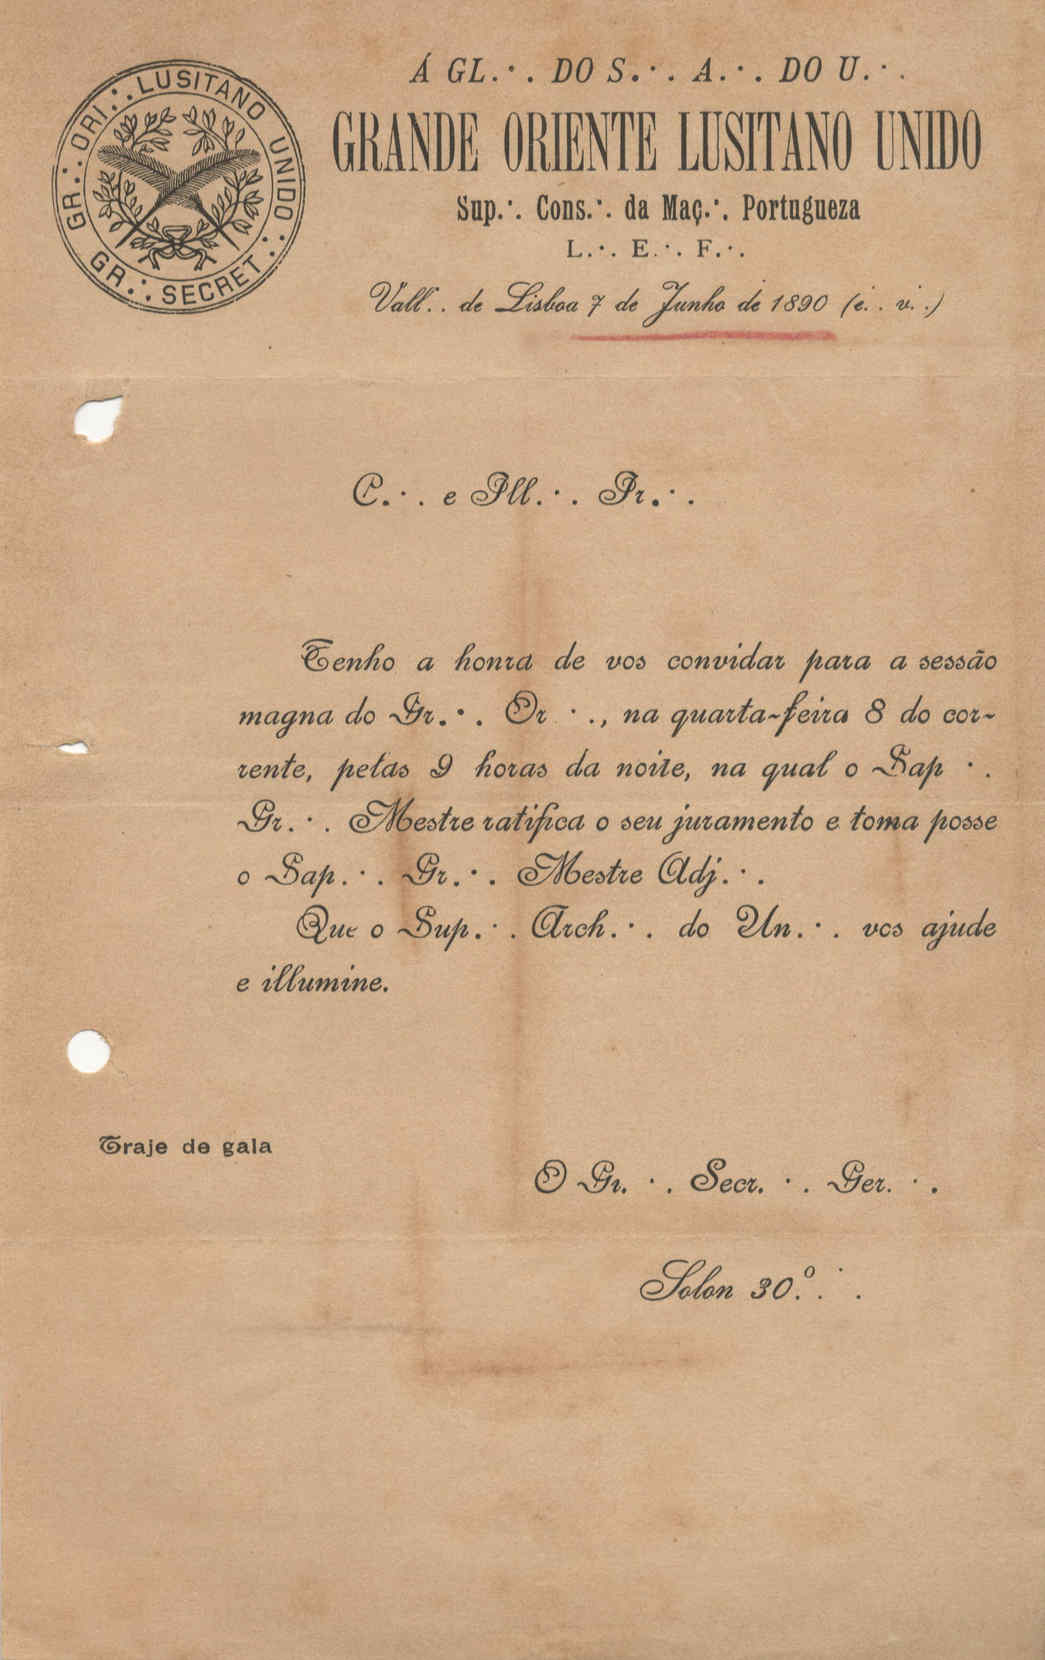 GR.·. ORI.·. LUSITANO UNIDO.·.
GR.·. SECRET.·.
Á GL.·. DO S.·. A.·. DO U.·.
GRANDE ORIENTE LUSITANO UNIDO
Sup.·. Cons.·. da Maç.·. Portugueza
L.·. E.·. F.·.
Vall.. de Lisboa 7 de Junho de 1890 (e.. v..)
C.·. e Ill.·. Ir.·.
Tenho a honra de vos convidar para a sessão
magna do Gr.·. Or.·., na quarta-feira 8 do cor-
rente, pelas 9 horas da noite, na qual o Sap.·.
Gr.·. Mestre ratifica o seu juramento e toma posse
o Sap.·. Gr.·. Mestre Adj.·.
Que o Sup.·. Arch.·. do Un.·. vos ajude
e illumine.
Traje de gala
O Gr.·. Secr.·. Ger.·.
Solon 30.º.·.